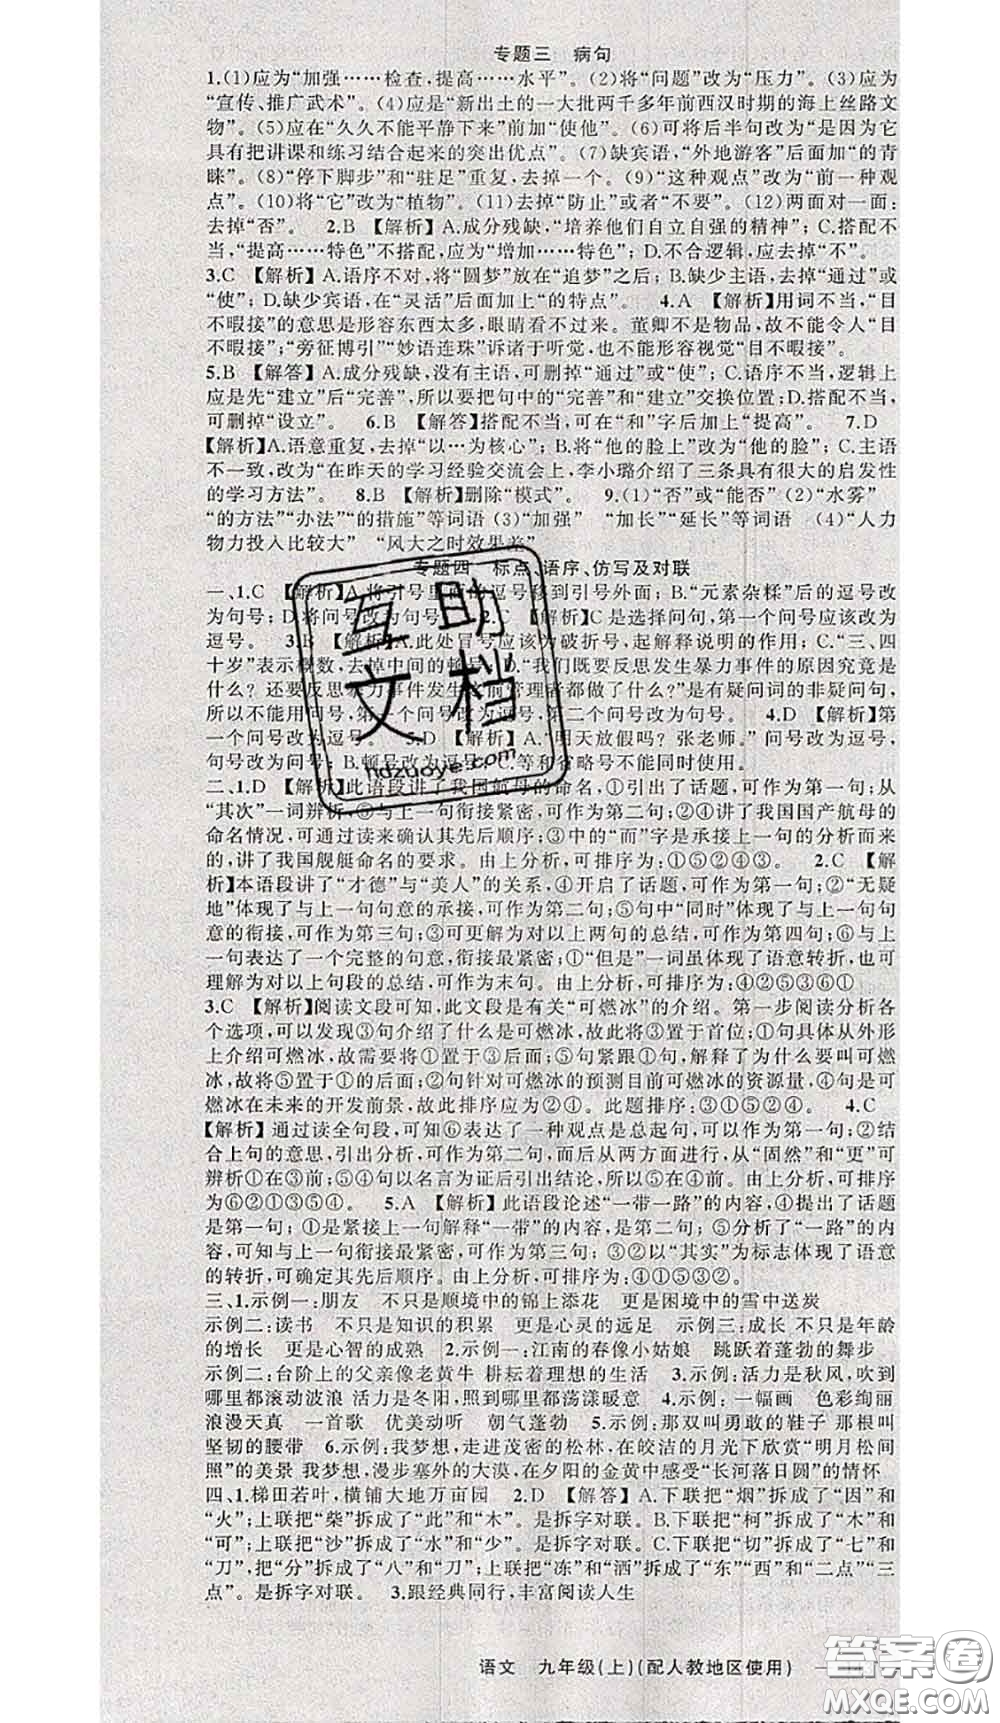 专题三　病句
1.(1)应为“加强……检查,提高……水平”。(2)将“问题”改为“压力”。(3)应为
“宣传、推广武术”。(4)应是“新出土的一大批两千多年前西汉时期的海上丝路文
物”。(5)应在“久久不能平静下来”前加“使他”。(6)可将后半句改为“是因为它
具有把讲课和练习结合起来的突出优点”。(7)缺宾语,“外地游客”后面加“的青
睐”。(8)“停下脚步”和“驻足”重复,去掉一个。(9)“这种观点”改为“前一种观
点”。(10)将“它”改为“植物”。(11)去掉“防止”或者“不要”。(12)两面对一面:
去掉“否”。　2.B　【解析】A.成分残缺,“培养他们自立自强的精神”;C.搭配不
当,“提高……特色”不搭配,应为“增加……特色”;D.不合逻辑,应去掉“不”。
3.C　【解析】A.语序不对,将“圆梦”放在“追梦”之后;B.缺少主语,去掉“通过”或
“使”;D.缺少宾语,在“灵活”后面加上“的特点”。　4.A　【解析】用词不当,“目
不暇接”的意思是形容东西太多,眼睛看不过来。董卿不是物品,故不能令人“目
不暇接”;“旁征博引”“妙语连珠”诉诸于听觉,也不能形容视觉“目不暇接”。
5.B　【解答】A.成分残缺,没有主语,可删掉“通过”或“使”;C.语序不当,逻辑上
应是先“建立”后“完善”,所以要把句中的“完善”和“建立”交换位置;D.搭配不当,
可删掉“设立”。　6.B　【解答】搭配不当,可在“和”字后加上“提高”。　7.D
【解析】A.语意重复,去掉“以…为核心”;B.将“他的脸上”改为“他的脸”;C.主语
不一致,改为“在昨天的学习经验交流会上,李小璐介绍了三条具有很大的启发性
的学习方法”。　8.B　【解析】删除“模式”。　9.(1)“否”或“能否”(2)“水雾”
“的方法”“办法”“的措施”等词语 (3)“加强”　“加长”“延长”等词语　(4)“人力
物力投入比较大”　“风大之时效果差”
专题四　标点、语序、仿写及对联
一、1.C　【解析】A.将引号里面的逗号移到引号外面;B.“元素杂糅”后的逗号改
为句号;D.将问号改为句号。　2.C　【解析】C是选择问句,第一个问号应该改为
逗号。　3.B　【解析】A.此处冒号应该为破折号,起解释说明的作用;C.“三、四
十岁”表示概数,去掉中间的顿号;D.“我们既要反思发生暴力事件的原因究竟是
什么?还要反思暴力事件发生之前管理者都做了什么?”是有疑问词的非疑问句,
所以不能用问号,第一个问号改为逗号,第二个问号改为句号。　4.D　【解析】第
一个问号改为逗号。　5.D　【解析】A.“明天放假吗?张老师。”问号改为逗号,
句号改为问号;B.顿号改为逗号;C.等和省略号不能同时使用。
二、1.D　【解析】此语段讲了我国航母的命名,①引出了话题,可作为第一句;从
“其次”一词辨析,⑤与上一句衔接紧密,可作为第二句;②④讲了我国国产航母的
命名情况,可通过读来确认其先后顺序;③中的“而”字是承接上一句的分析而来
的,讲了我国舰艇命名的要求。由上分析,可排序为:①⑤②④③。　2.C　【解
析】本语段讲了“才德”与“美人”的关系,④开启了话题,可作为第一句;②“无疑
地”体现了与上一句句意的承接,可作为第二句;⑤句中“同时”体现了与上一句句
意的衔接,可作为第三句;③可更解为对以上两句的总结,可作为第四句;⑥与上
一句表达了一个完整的句意,衔接最紧密;①“但是”一词虽体现了语意转折,也可
理解为对以上句段的总结,可作为末句。由上分析,可排序为:④②⑤③⑥①
3.C　【解析】阅读文段可知,此文段是有关“可燃冰”的介绍。第一步阅读分析各
个选项,可以发现③句介绍了什么是可燃冰,故此将③置于首位;①句具体从外形
上介绍可燃冰,故需要将①置于③后面;⑤句紧跟①句,解释了为什么要叫可燃
冰,故将⑤置于①的后面;②句针对可燃冰的预测目前可燃冰的资源量,④句是可
燃冰在未来的开发前景,故此排序应为②④。此题排序:③①⑤②④。　4.C
【解析】通过读全句段,可知⑥表达了一种观点是总起句,可以作为第一句;②结
合上句的意思,引出分析,可作为第二句,而后从两方面进行,从“固然”和“更”可
辨析①在③前;⑤句以名言为证后引出结论,所以⑤在④前。由上分析,可排序
为⑥②①③⑤④。　5.A　【解析】此语段论述“一带一路”的内容,④提出了话题
是第一句;①是紧接上一句解释“一带”的内容,是第二句;⑤分析了“一路”的内
容,可知与上一句衔接最紧密,可作为第三句;③②以“其实”为标志体现了语意
的转折,可确定其先后顺序。由上分析,可排序为:④①⑤③②。
三、1.示例一:朋友　不只是顺境中的锦上添花　更是困境中的雪中送炭
示例二:读书　不只是知识的积累　更是心灵的远足　示例三:成长 不只是年龄
的增长　更是心智的成熟　2.示例一:江南的春像小姑娘　跳跃着蓬勃的舞步
示例二:台阶上的父亲像老黄牛 耕耘着理想的生活　3.示例:活力是秋风,吹到
哪里都滚动波浪 活力是冬阳,照到哪里都荡漾暖意　4.示例:一幅画　色彩绚丽
浪漫天真　一首歌　优美动听　朝气蓬勃　5.示例:那双叫勇敢的鞋子 那根叫
坚韧的腰带　6.示例:我梦想,走进茂密的松林,在皎洁的月光下欣赏“明月松间
照”的美景 我梦想,漫步塞外的大漠,在夕阳的金黄中感受“长河落日圆”的情怀
四、1.梯田若叶,横铺大地万亩园　2.D　【解答】A.下联把“烟”拆成了“因”和
“火”;上联把“柴”拆成了“此”和“木”。是拆字对联。B.下联把“柯”拆成了“木”和
“可”;上联把“沙”拆成了“水”和“少”。是拆字对联。C.下联把“切”拆成了“七”和
“刀”,把“分”拆成了“八”和“刀”;上联把“冻”和“洒”拆成了“东”“西”和“二点”“三
点”。是拆字对联。　3.跟经典同行,丰富阅读人生
语文　九年级(上)(配人教地区使用)
互助文档
hdzuoye.com
答案圈
MXQE.COM